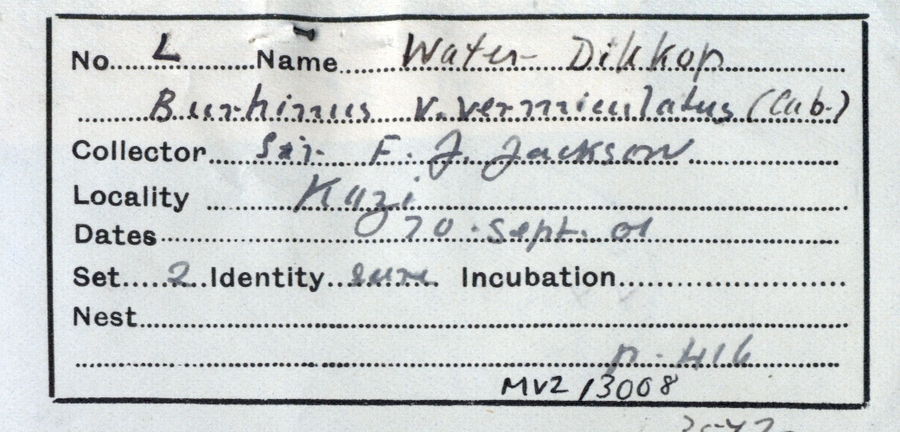 No. L Name Water Dikkop
Burhinus v. vermiculatus (Cab.)
Collector Sir F. J. Jackson
Locality Kazi
Dates 20 Sept. 01
Set 2 Identity sure Incubation
Nest
p. 416
MVZ 13008